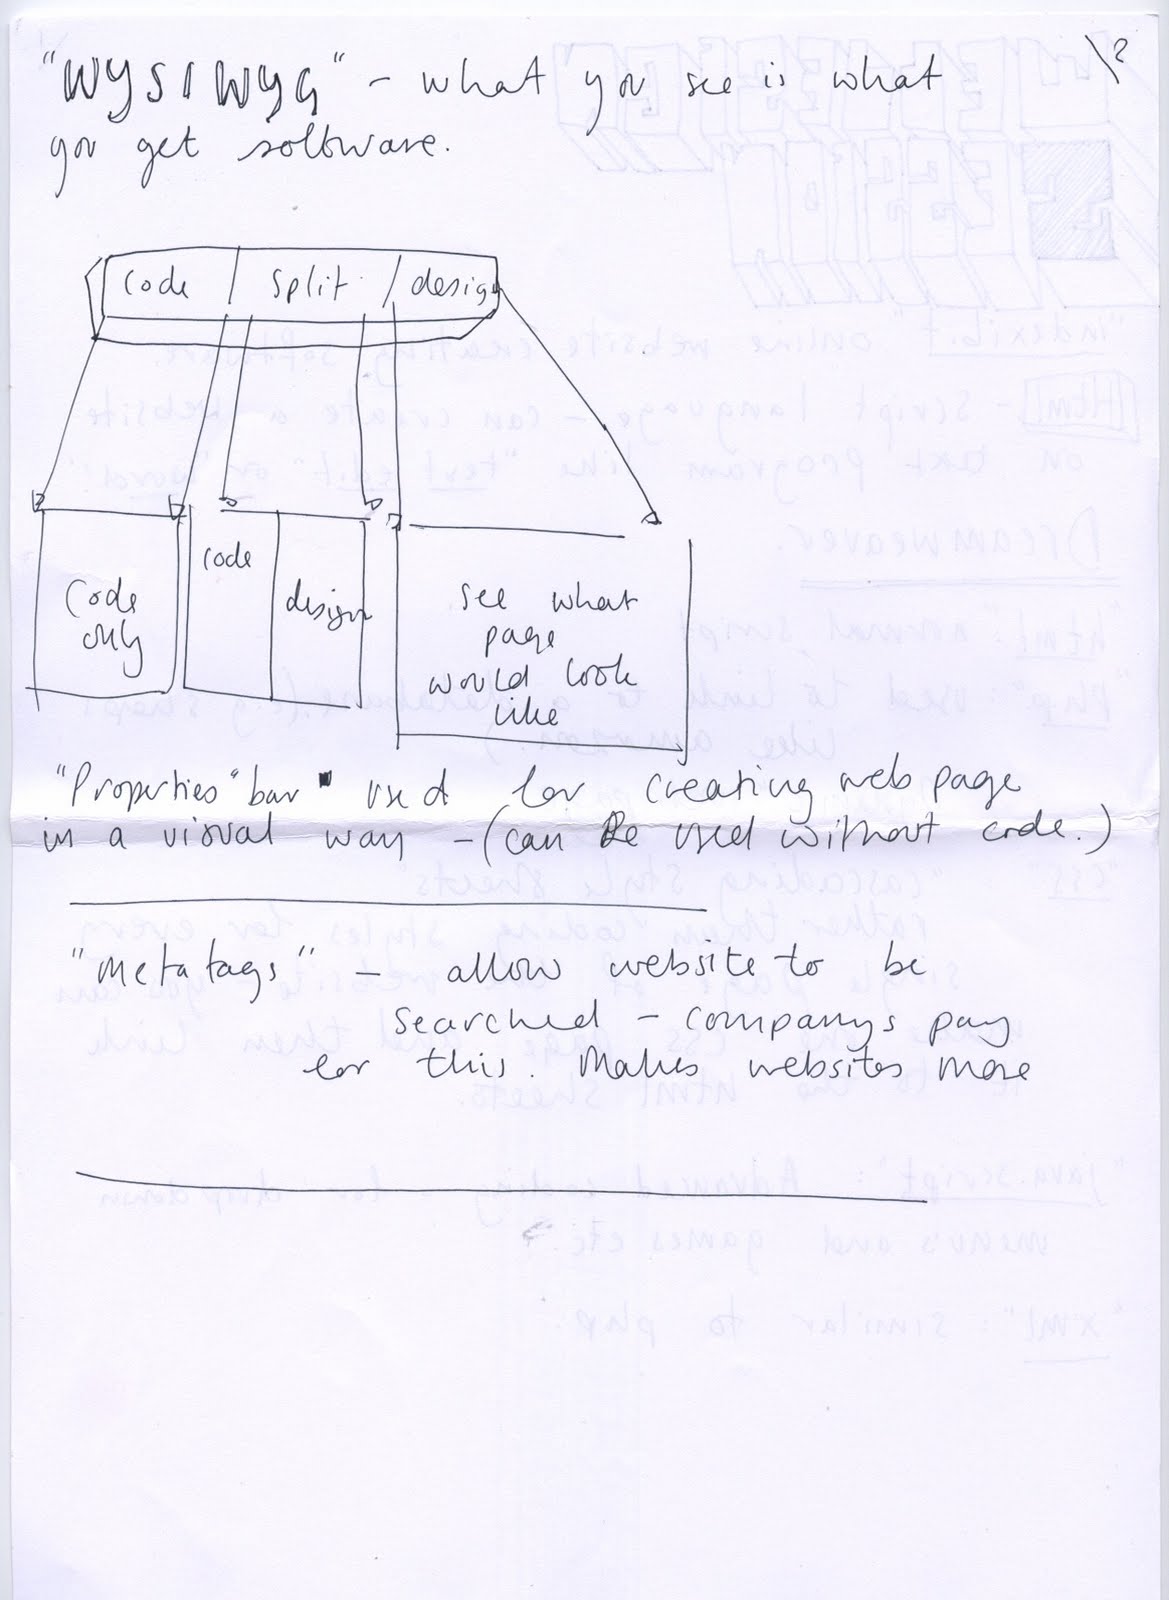 "WYSIWYG" - what you see is what
you get software.
code / split / design
code
Code only
design
see what
page
would look
like
"Properties" bar" used for creating web page
in a visual way - (can be used without code.)
"Metatags" - allow website to be
searched - companys pay
for this. Makes websites more